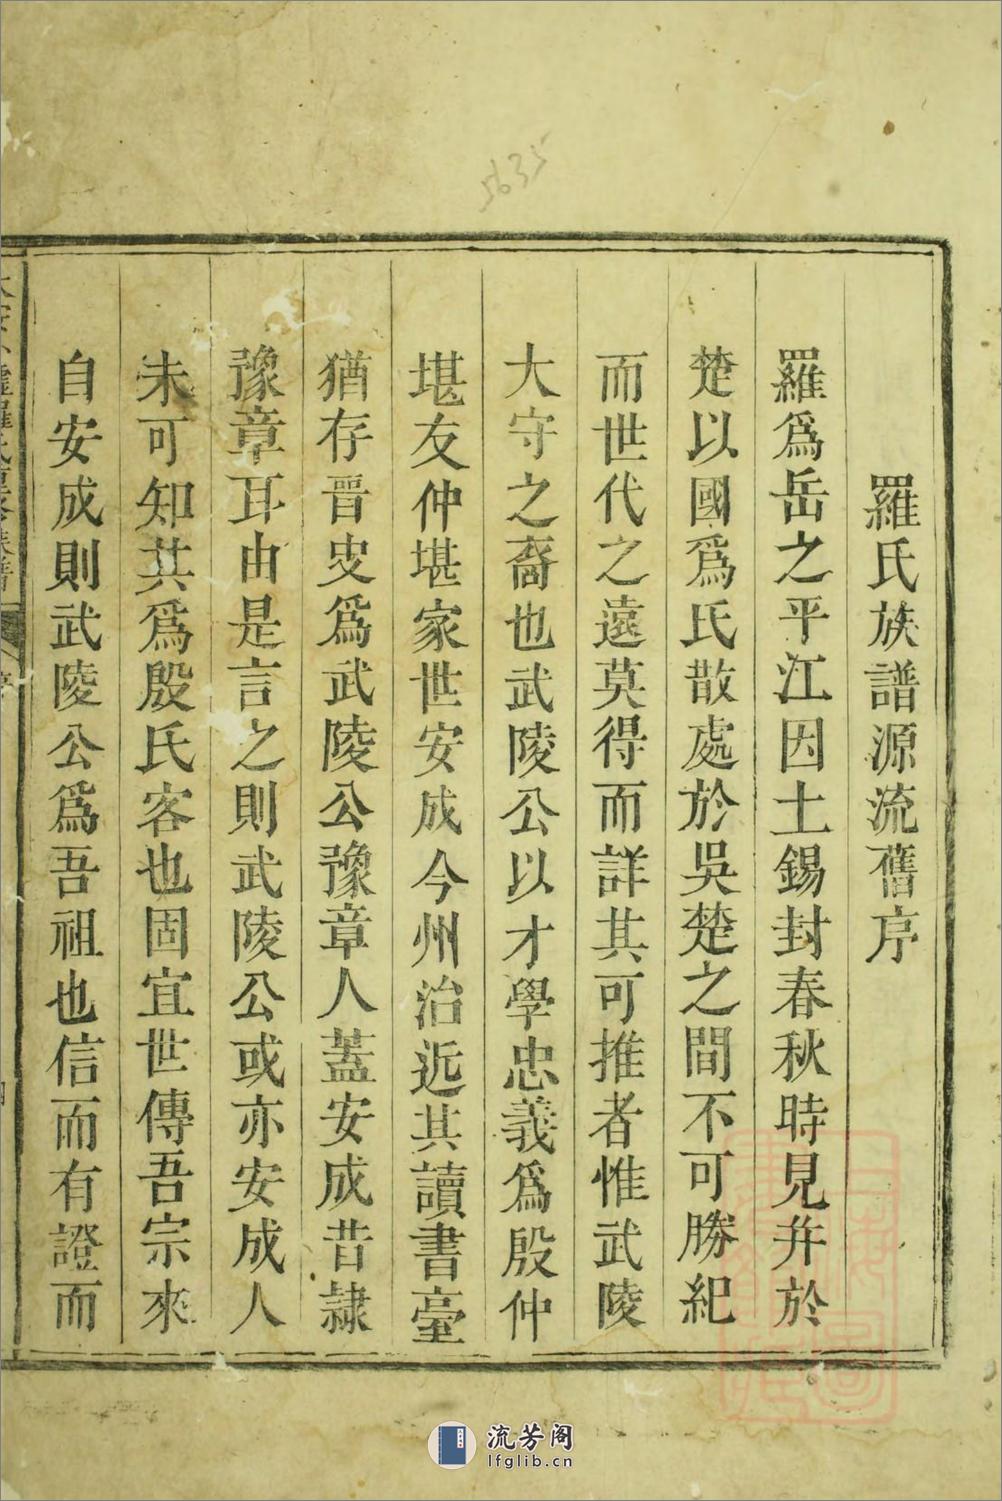 5635
羅氏族譜源流舊序
羅爲岳之平江因土錫封春秋時見并於
楚以國爲氏散處於吳楚之間不可勝紀
而世代之遠莫得而詳其可推者惟武陵
大守之裔也武陵公以才學忠義爲殷仲
堪友仲堪家世安成今州治近其讀書臺
猶存晉史爲武陵公豫章人蓋安成昔隷
豫章耳由是言之則武陵公或亦安成人
未可知其爲殷氏客也固宜世傳吾宗來
自安成則武陵公爲吾祖也信而有證而
流芳阁
lfglib.cn